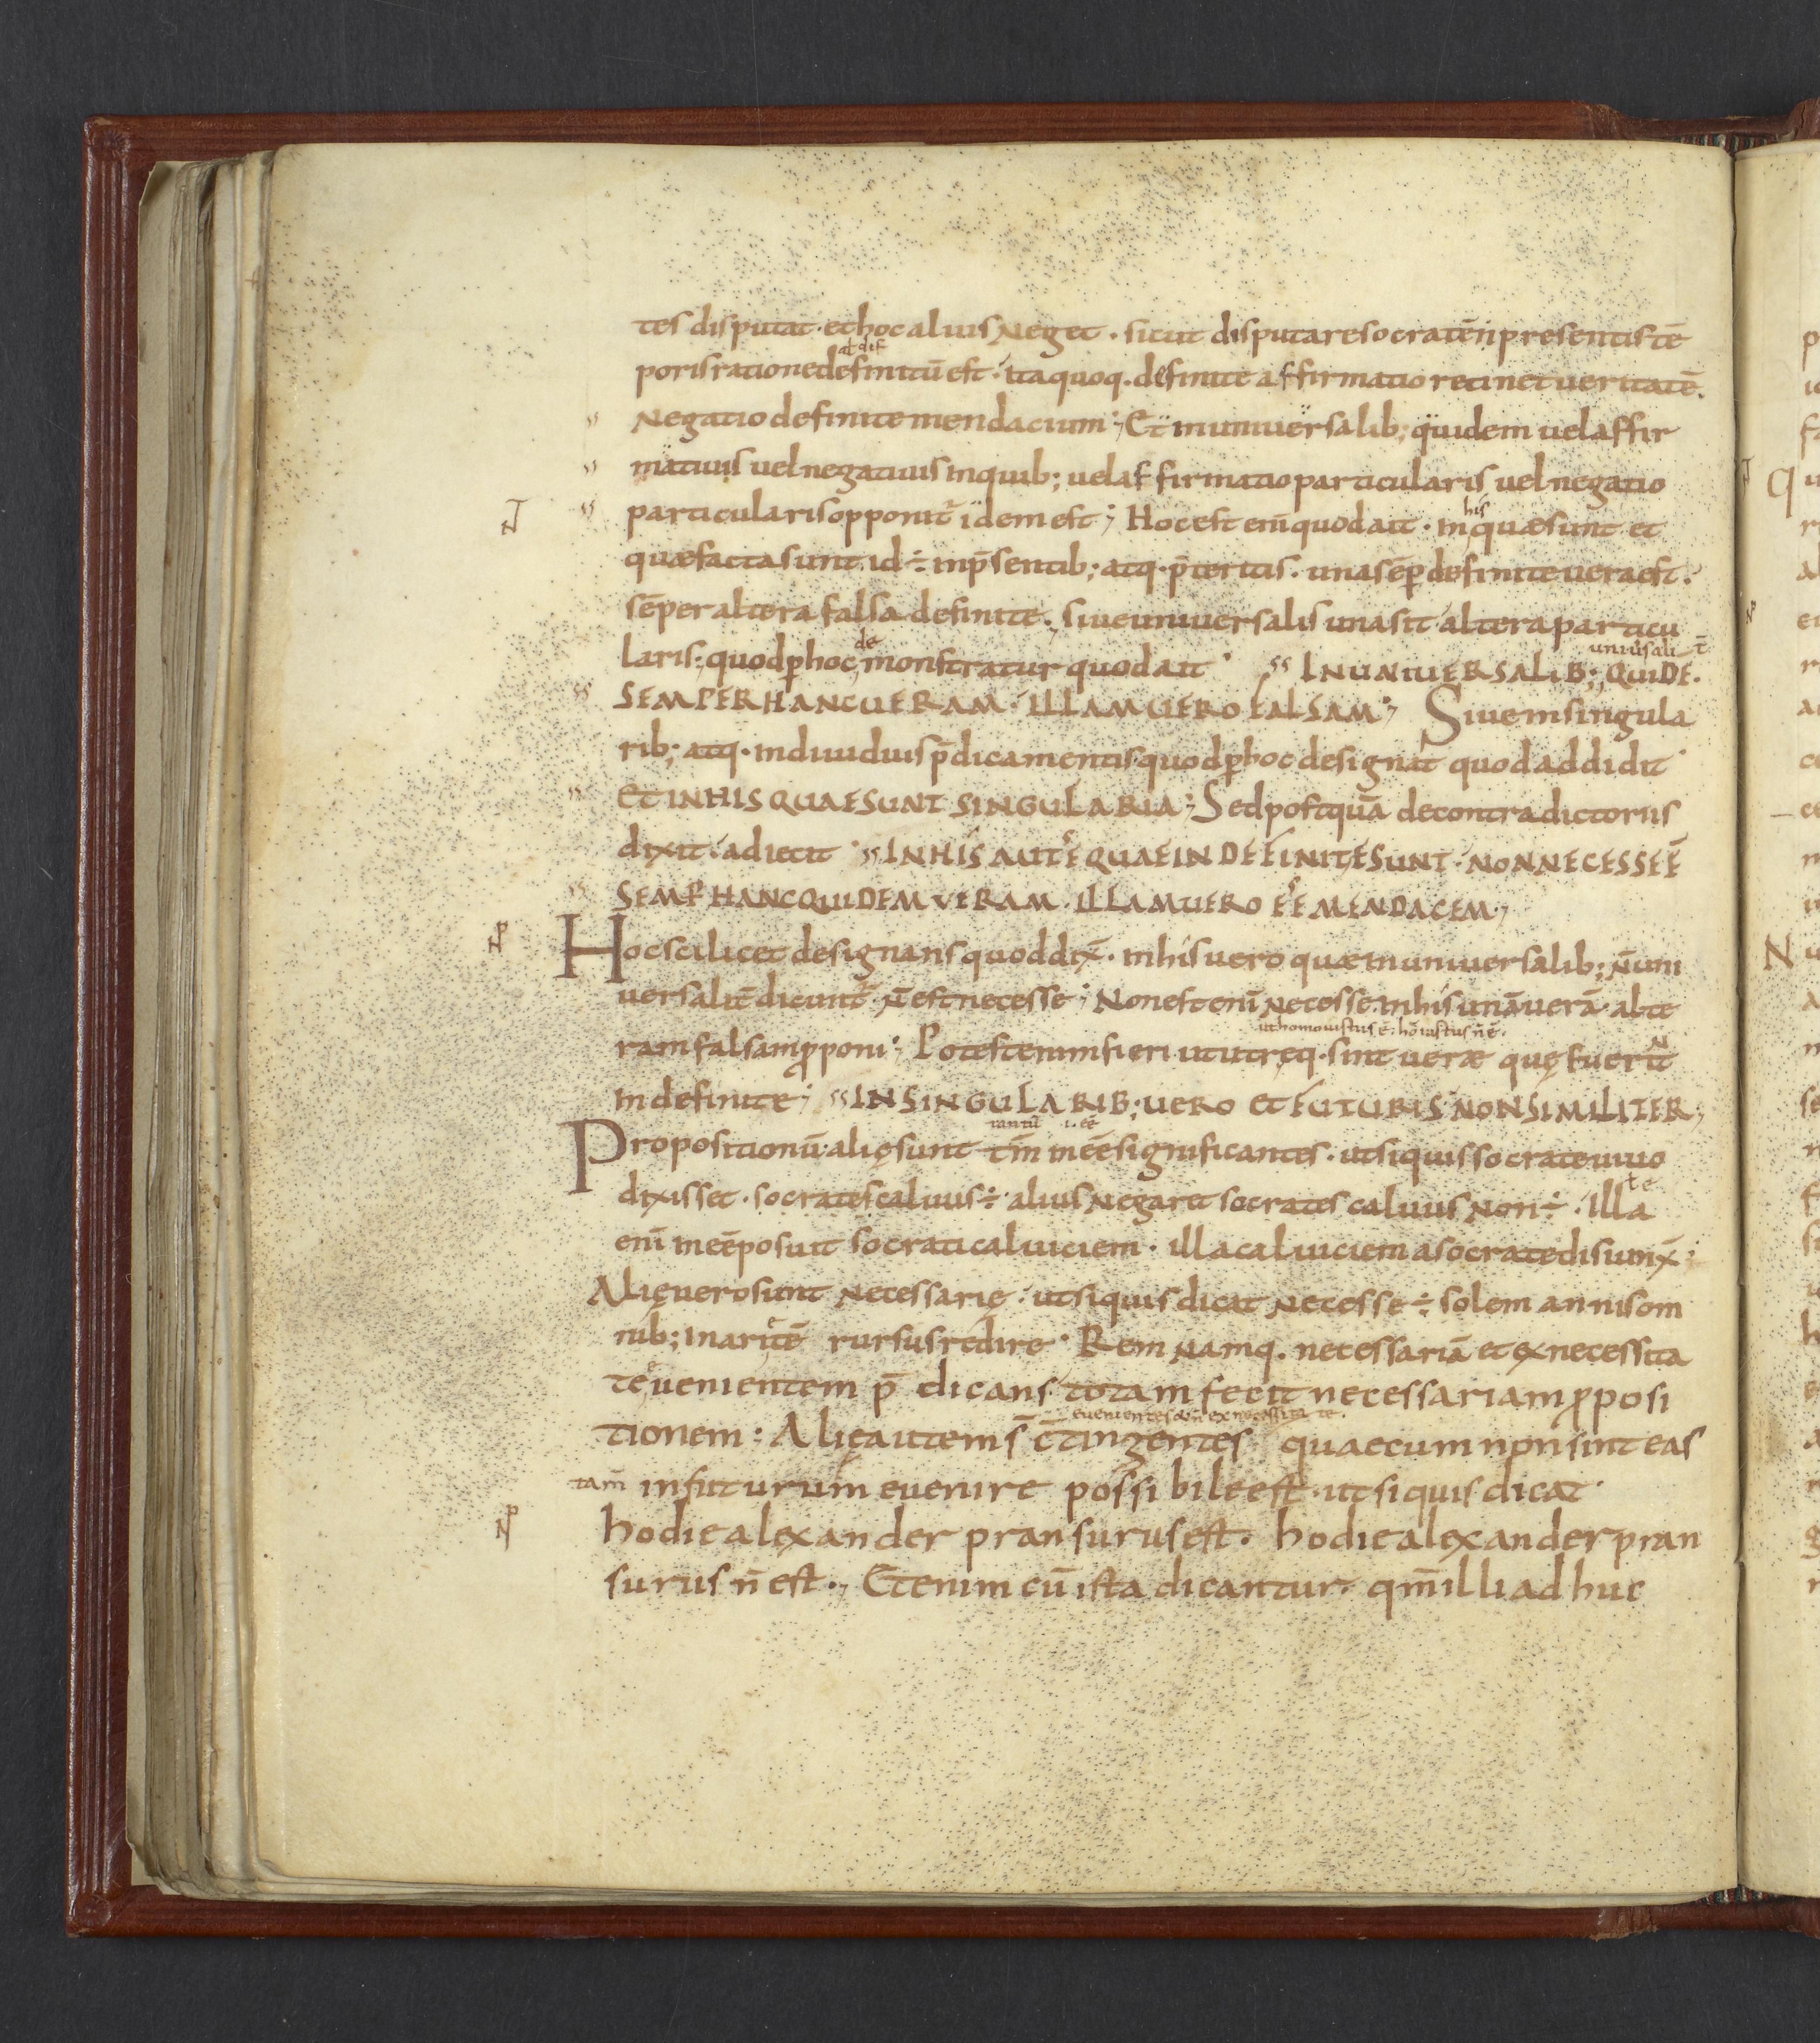 tes disputat · et hoc alius neget · sicut disputare socratē in presentis tē
al dif
poris ratione definitū est · ita quoq · definite affirmatio retinet veritatē.
Negatio definite mendacium ; Et in universalib; quidem vel affir
mativis vel negativis in quib; vel affirmatio particularis vel negatio
his
particularis opponit̄ idem est ; Hoc est enī quod ait · in quae sunt et
quae facta sunt id ÷ in p̄sentib; atq · p̄teritis · una sēp definite vera est.
sēper altera falsa definite ; sive universalis una sit altera particu
de
laris ; quod ꝑ hoc monstratur quod ait · IN UNIVERSALIB; QUIDE ·
SEMPER HANC UERAM · ILLAM UERO FALSAM ; Sive in singula
rib; atq · individuis p̄dicamentis quod ꝑ hoc designat quod addidit
ET IN HIS QUAE SUNT SINGULARIA ; Sed postquā de contradictoriis
dixit · adiecit · IN HIS AUTĒ QUAE IN DEFINITE SUNT · NON NECESSE Ē
SEMP HANC QUIDEM VERAM · ILLAM UERO ĒE MENDACEM ;
Hoc scilicet designans quod dix̄ · in his vero quae in universalib; n̄ uni
versalit̄ dicunt̄ n̄ est necesse ; Non est enī necesse in his unā verā · alte
ut homo iustus ē · hō iustus n̄ ē ·
ram falsam ꝓponi ; Potest enim fieri ut utreq · sint verae quę fuerit̄
in definite ; IN SINGULARIB; UERO ET FUTURIS NON SIMILITER ;
tantū i · ēe
Propositionū alię sunt tm̄ inēe significantes · ut si quis socrate vivo
te
dixisset · socrates calvus ÷ alius negaret socrates calvus non ÷ · illa
enī inēe posuit socrati calviciem · illa calviciem a socrate disiunx̄ ;
Alię vero sunt necessarię · ut si quis dicat necesse ÷ solem annis om
nib; in arietē rursus redire · Rem namq · necessariā et ex necessita
te evenientem p̄dicans totam fecit necessariam ꝓposi
evenientes & n̄ ex necessitate ·
tionem : Alię autem s̄ c̄tingentes quae cum non sint eas
tam̄ in futurum evenire possibile est · ut si quis dicat
hodie alexander pransurus est · hodie alexander pran
surus n̄ est ·, Etenim cū ista dicantur · qm̄ illi adhuc